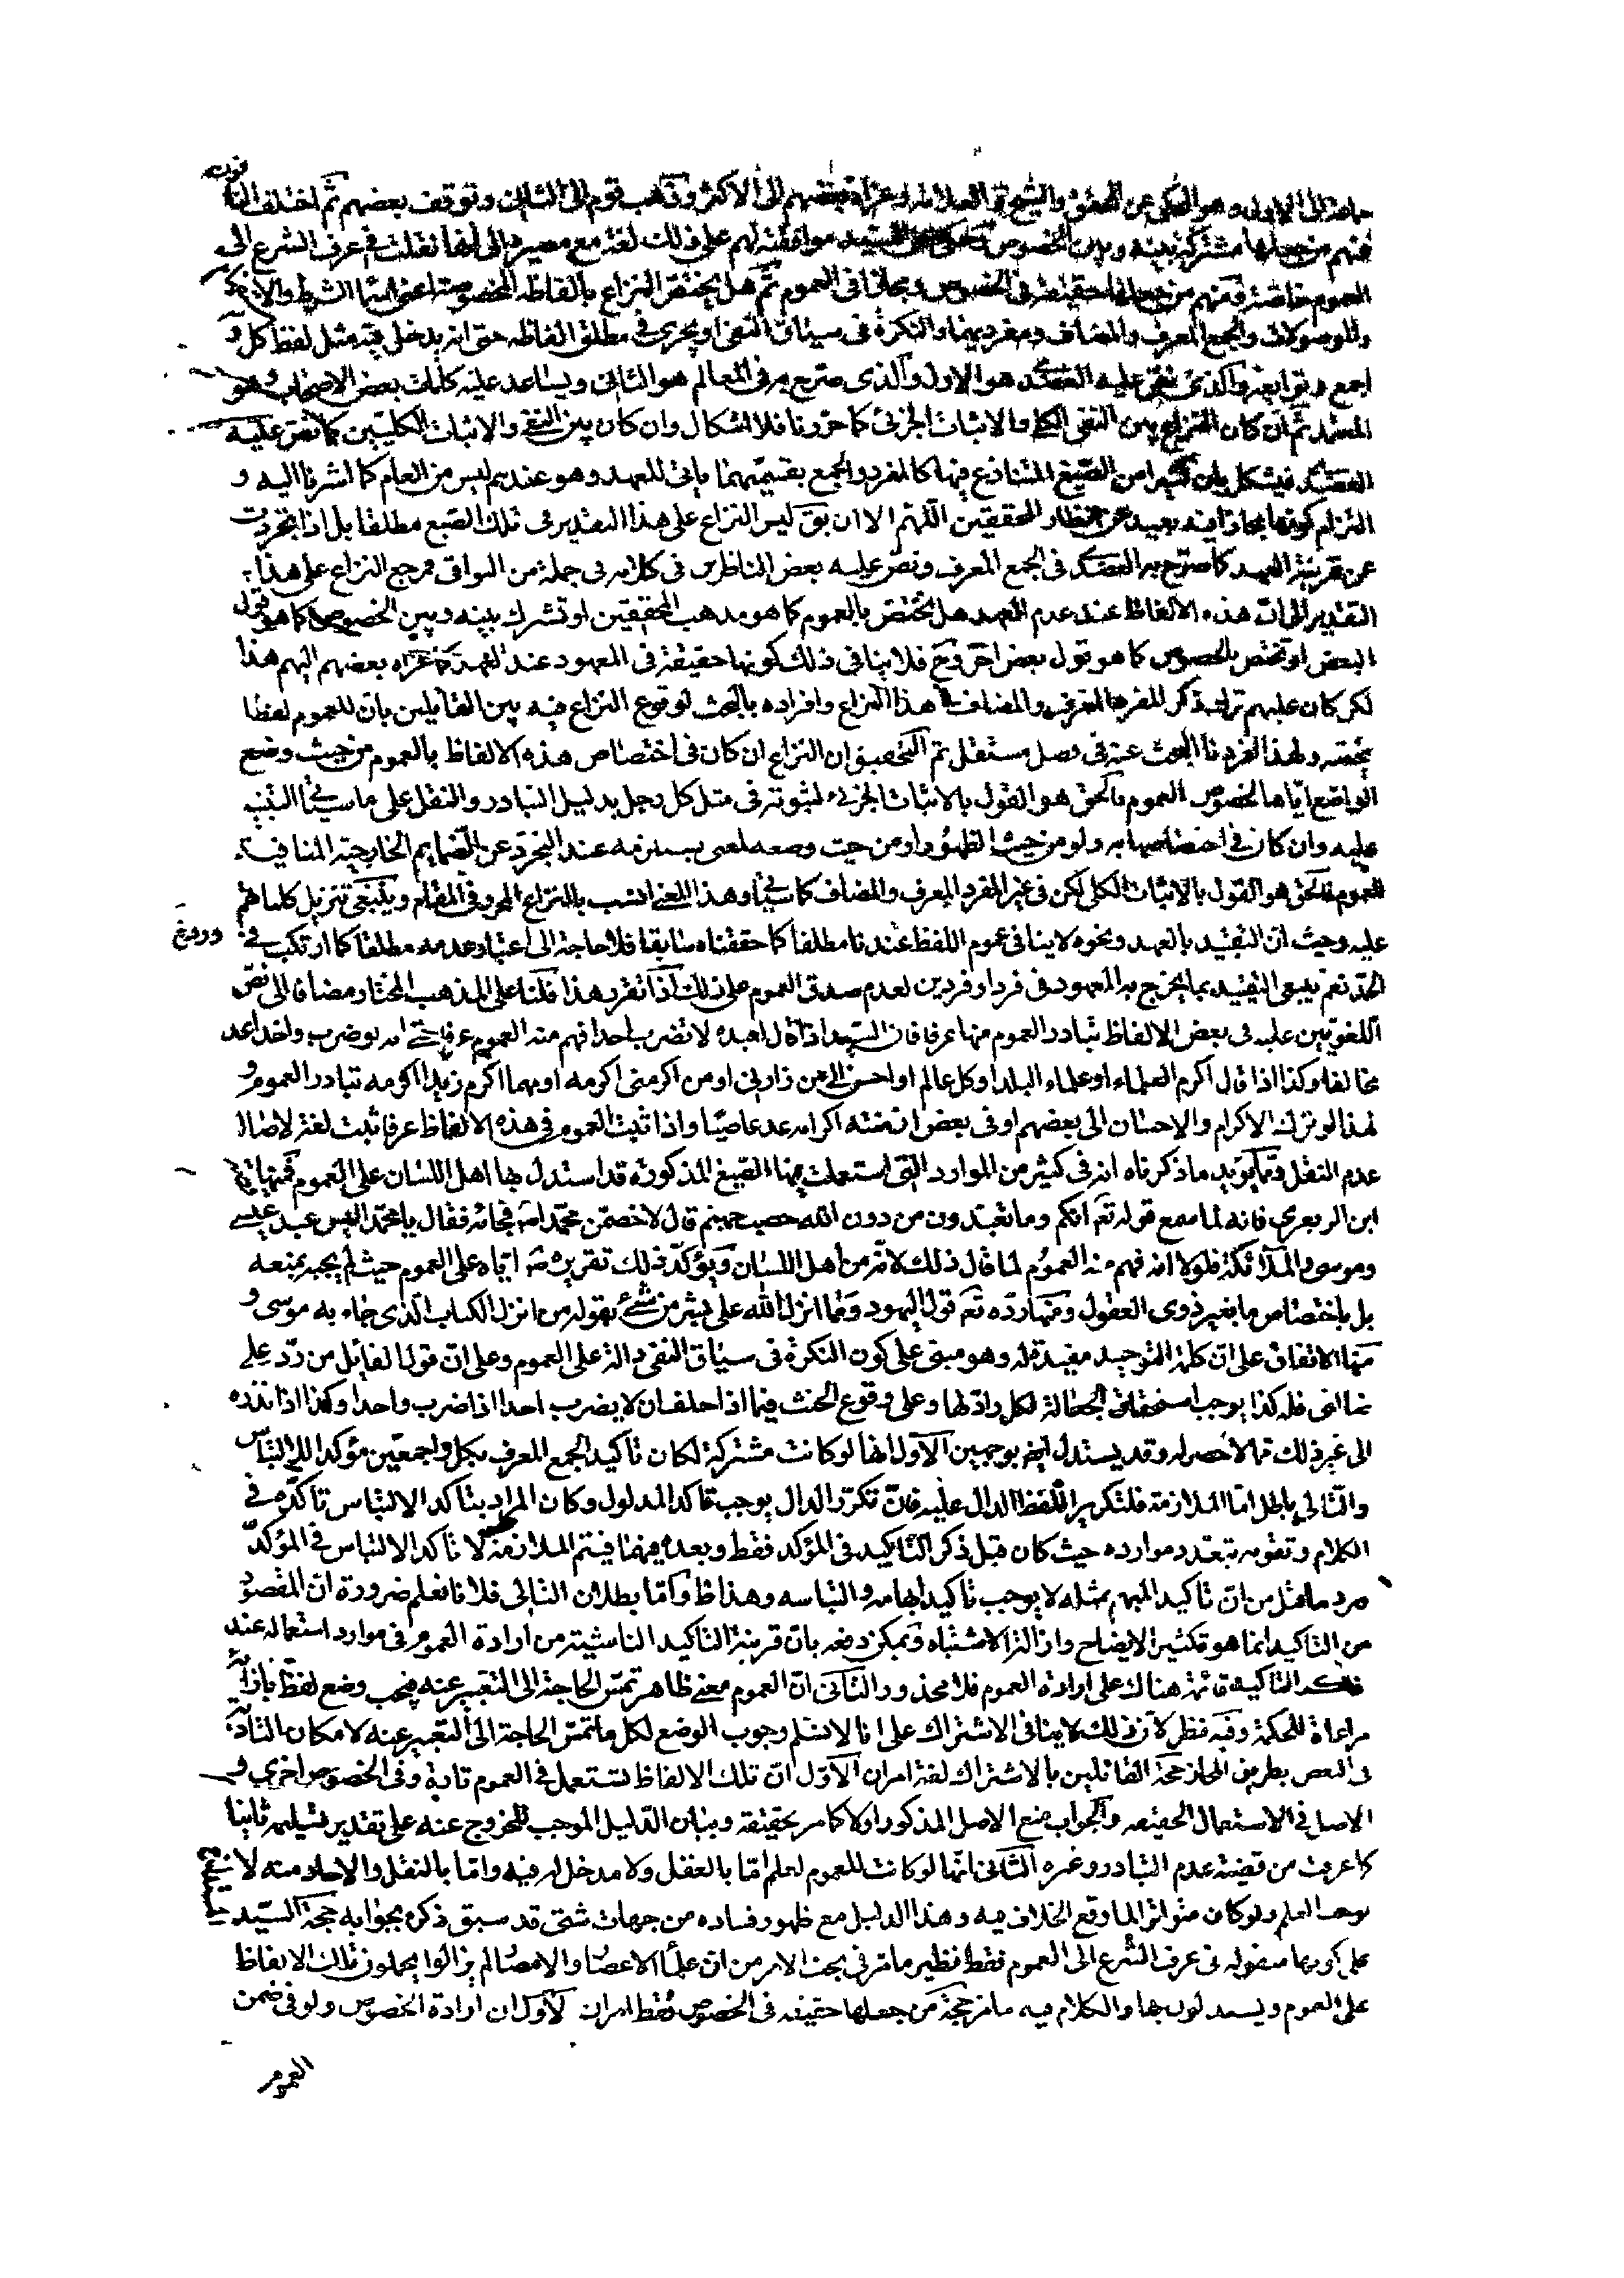 جماعة الى الاول وهو المحكى عن المحقق والشيخ والعلامة وعزاه بعضهم الى الاكثر وذهب قوم الى الثانى وتوقف بعضهم ثم اختلف النافون
فمنهم من جعلها مشتركة بينه وبين الخصوص السيد موافقته لهم على ذلك لغة مع مصيره الى انها نقلت فى عرف الشرع الى
العموم خاصة ومنهم من جعلها حقيقة فى الخصوص ومجازا فى العموم ثم هل يختص النزاع بالفاظه المخصوصة اعنى اسماء الشرط والا
والموصولات والجمع المعرف والمضاف ومفرديهما والنكرة فى سياق النفى او يجرى فى مطلق الفاظه حتى انه يدخل فيه مثل لفظ كل و
اجمع وتوابعه والذى نص عليه العضدى هو الاول والذى صرح به فى المعالم هو الثانى ويساعد عليه كلمات بعض الاصحاب وهو
المعتمد ثم ان كان النزاع بين النفى الكلى والاثبات الجزئى كما حررنا فلا اشكال وان كان بين النفى والاثبات الكليين كما نص عليه
العضدى فيشكل بان كثيرا من الصيغ المتنازع فيها كالمفرد والجمع بقسميهما ياتى للعهد وهو عندهم ليس من العام كما اشرنا اليه و
التزام كونها مجازا فيه بعيد عن انظار المحققين اللهم الا ان يق ليس النزاع على هذا التقدير فى تلك الصيغ مطلقا بل اذا تجردت
عن قرينة العهد كما صرح به العضدى فى الجمع المعرف ونص عليه بعض المناظرين فى كلامه فى جملة من البواقى فمرجع النزاع على هذا
التقدير الى ان هذه الالفاظ عند عدم العهد هل يختص بالعموم كما هو مذهب المحققين او تشترك بينه وبين الخصوص كما هو قول
البعض او تختص بالخصوص كما هو قول بعض اخر وح فلا ينافى ذلك كونها حقيقة فى المعهود عند العهد كما عزاه بعضهم اليهم هذا
لكن كان عليهم ترك ذكر المفرد المعرف والمضاف فى هذا النزاع وافراده بالبحث لوقوع النزاع فيه بين القائلين بان للعموم لفظا
يخصه ولهذا افردنا البحث عنه فى فصل مستقل ثم التحقيق ان النزاع ان كان فى اختصاص هذه الالفاظ بالعموم من حيث وضع
الواضع اياها لخصوص العموم فالحق هو القول بالاثبات الجزئى لثبوته فى مثل كل رجل بدليل التبادر والنقل على ما سيئاتى التنبيه
عليه وان كان فى اختصاصها به ولو من حيث الظهور او من حيث وضعه لمعنى يستلزمه عند التجرد عن الضمايم الخارجية المنافية
للعموم فالحق هو القول بالاثبات الكلى لكن فى غير المفرد المعرف والمضاف كما سيئاتى وهذا المعنى انسب بالنزاع المحرر فى المقام وينبغى تنزيل كلماتهم
عليه وحيث ان التقييد بالعهد ونحوه لا ينافى عموم اللفظ عندنا مطلقا كما حققناه سابقا فلا حاجة الى اعتبار عدمه مطلقا كما ارتكب فى
الحد نعم ينبغى التقييد بما يخرج به المعهود فى فرد او فردين لعدم صدق العموم على ذلك اذا تقرر هذا فلنا على المذهب المختار مضافا الى نص
اللغويين عليه فى بعض الالفاظ تبادر العموم منها عرفا فان السيد اذا قال لعبده لا تضرب احدا فهم منه العموم عرفا حتى انه لو ضرب واحدا عد
مخالفا وكذا اذا قال اكرم العلماء او علماء البلد او كل عالم او احسن الى من زارنى او من اكرمنى اكرمه او مهما اكرم زيدا اكرمه تبادر العموم و
لهذا لو ترك الاكرام والاحسان الى بعضهم او فى بعض ازمنته اكرامه عد عاصيا واذا ثبت العموم فى هذه الالفاظ عرفا ثبت لغة لاصالة
عدم النقل ومما يؤيد ما ذكرناه انه فى كثير من الموارد التى استعملت فيها الصيغ المذكورة قد استدل بها اهل اللسان على العموم فمنها
ابن الزبعرى فانه لما سمع قوله تعم انكم وما تعبدون من دون الله حصب جهنم قال لاخصمن محمدا ص فجائه فقال يا محمد اليس عبد عيسى
وموسى والملائكة فلولا انه فهم منه العموم لما قال ذلك لانه من اهل اللسان ويؤكد ذلك تقريره ص اياه على العموم حيث لم يجبه بمنعه
بل باختصاص ما بغير ذوى العقول ومنها رده تعم قول اليهود وما انزل الله على بشر من شئ بقوله من انزل الكتاب الذى جاء به موسى و
منها الاتفاق على ان كلمة التوحيد مفيدة له وهو مبنى على كون النكرة فى سياق النفى دالة على العموم وعلى ان قول القائل من رد على
ضالتى فله كذا يوجب استحقاق الجعالة لكل راد لها وعلى وقوع الحنث فيما اذا حلف ان لا يضرب احدا اذا ضرب واحدا وكذا اذا نذره
الى غير ذلك مما لا حصر له وقد يستدل ايضا بوجهين الاول انها لو كانت مشتركة لكان تاكيد الجمع المعرف بكل واجمعين مؤكدا للالتباس
والتالى باطل اما الملازمة فلتكرير اللفظ الدال عليه فان تكرر الدال يوجب تاكد المدلول وكان المراد بتاكد الالتباس تاكده فى
الكلام وتقويه بتعدد موارده حيث كان قبل ذكر التاكيد فى المؤكد فقط وبعده فيهما فيتم الملازمة لا تاكد الالتباس فى المؤكد
فيرد ما قيل من ان تاكيد المبهم بمثله لا يوجب تاكيد ابهامه والتباسه وهذا ظ واما بطلان التالى فلانا نعلم ضرورة ان المقصود
من التاكيد انما هو تكثير الايضاح وازالة الاشتباه ويمكن دفعه بان قرينة التاكيد الناشئة من ارادة العموم فى موارد استعماله عند
التاكيد قائمة هناك على ارادة العموم فلا محذور الثانى ان العموم معنى ظاهر تمس الحاجة الى التعبير عنه فيجب وضع لفظ بازائه
مراعاة للحكمة وفيه نظر لان ذلك لا ينافى الاشتراك على انا لا نسلم وجوب الوضع لكل ما تمس الحاجة الى التعبير عنه لامكان التادية
فى البعض بطريق المجاز حجة القائلين بالاشتراك لغة امران الاول ان تلك الالفاظ تستعمل فى العموم تارة وفى الخصوص اخرى و
الاصل فى الاستعمال الحقيقة والجواب منع الاصل المذكور اولا كما مر تحقيقه وبيان الدليل الموجب للخروج عنه على تقدير تسليمه ثانيا
كما عرفت من قضية عدم التبادر وغيره الثانى انها لو كانت للعموم لعلم اما بالعقل ولا مدخل له فيه واما بالنقل والاحاد منه لا
يوجب العلم ولو كان متواترا لما وقع الخلاف فيه وهذا الدليل مع ظهور فساده من جهات شتى قد سبق ذكره بجوابه حجة السيد
على كونها منقولة فى عرف الشرع الى العموم فقط نظير ما مر فى بحث الامر من ان علماء الاعصار والامصار لم يزالوا يحملون تلك الالفاظ
على العموم ويستدلون بها والكلام فيه ما مر حجة من جعلها حقيقة فى الخصوص فقط امران الاول ان ارادة الخصوص ولو فى ضمن
العموم